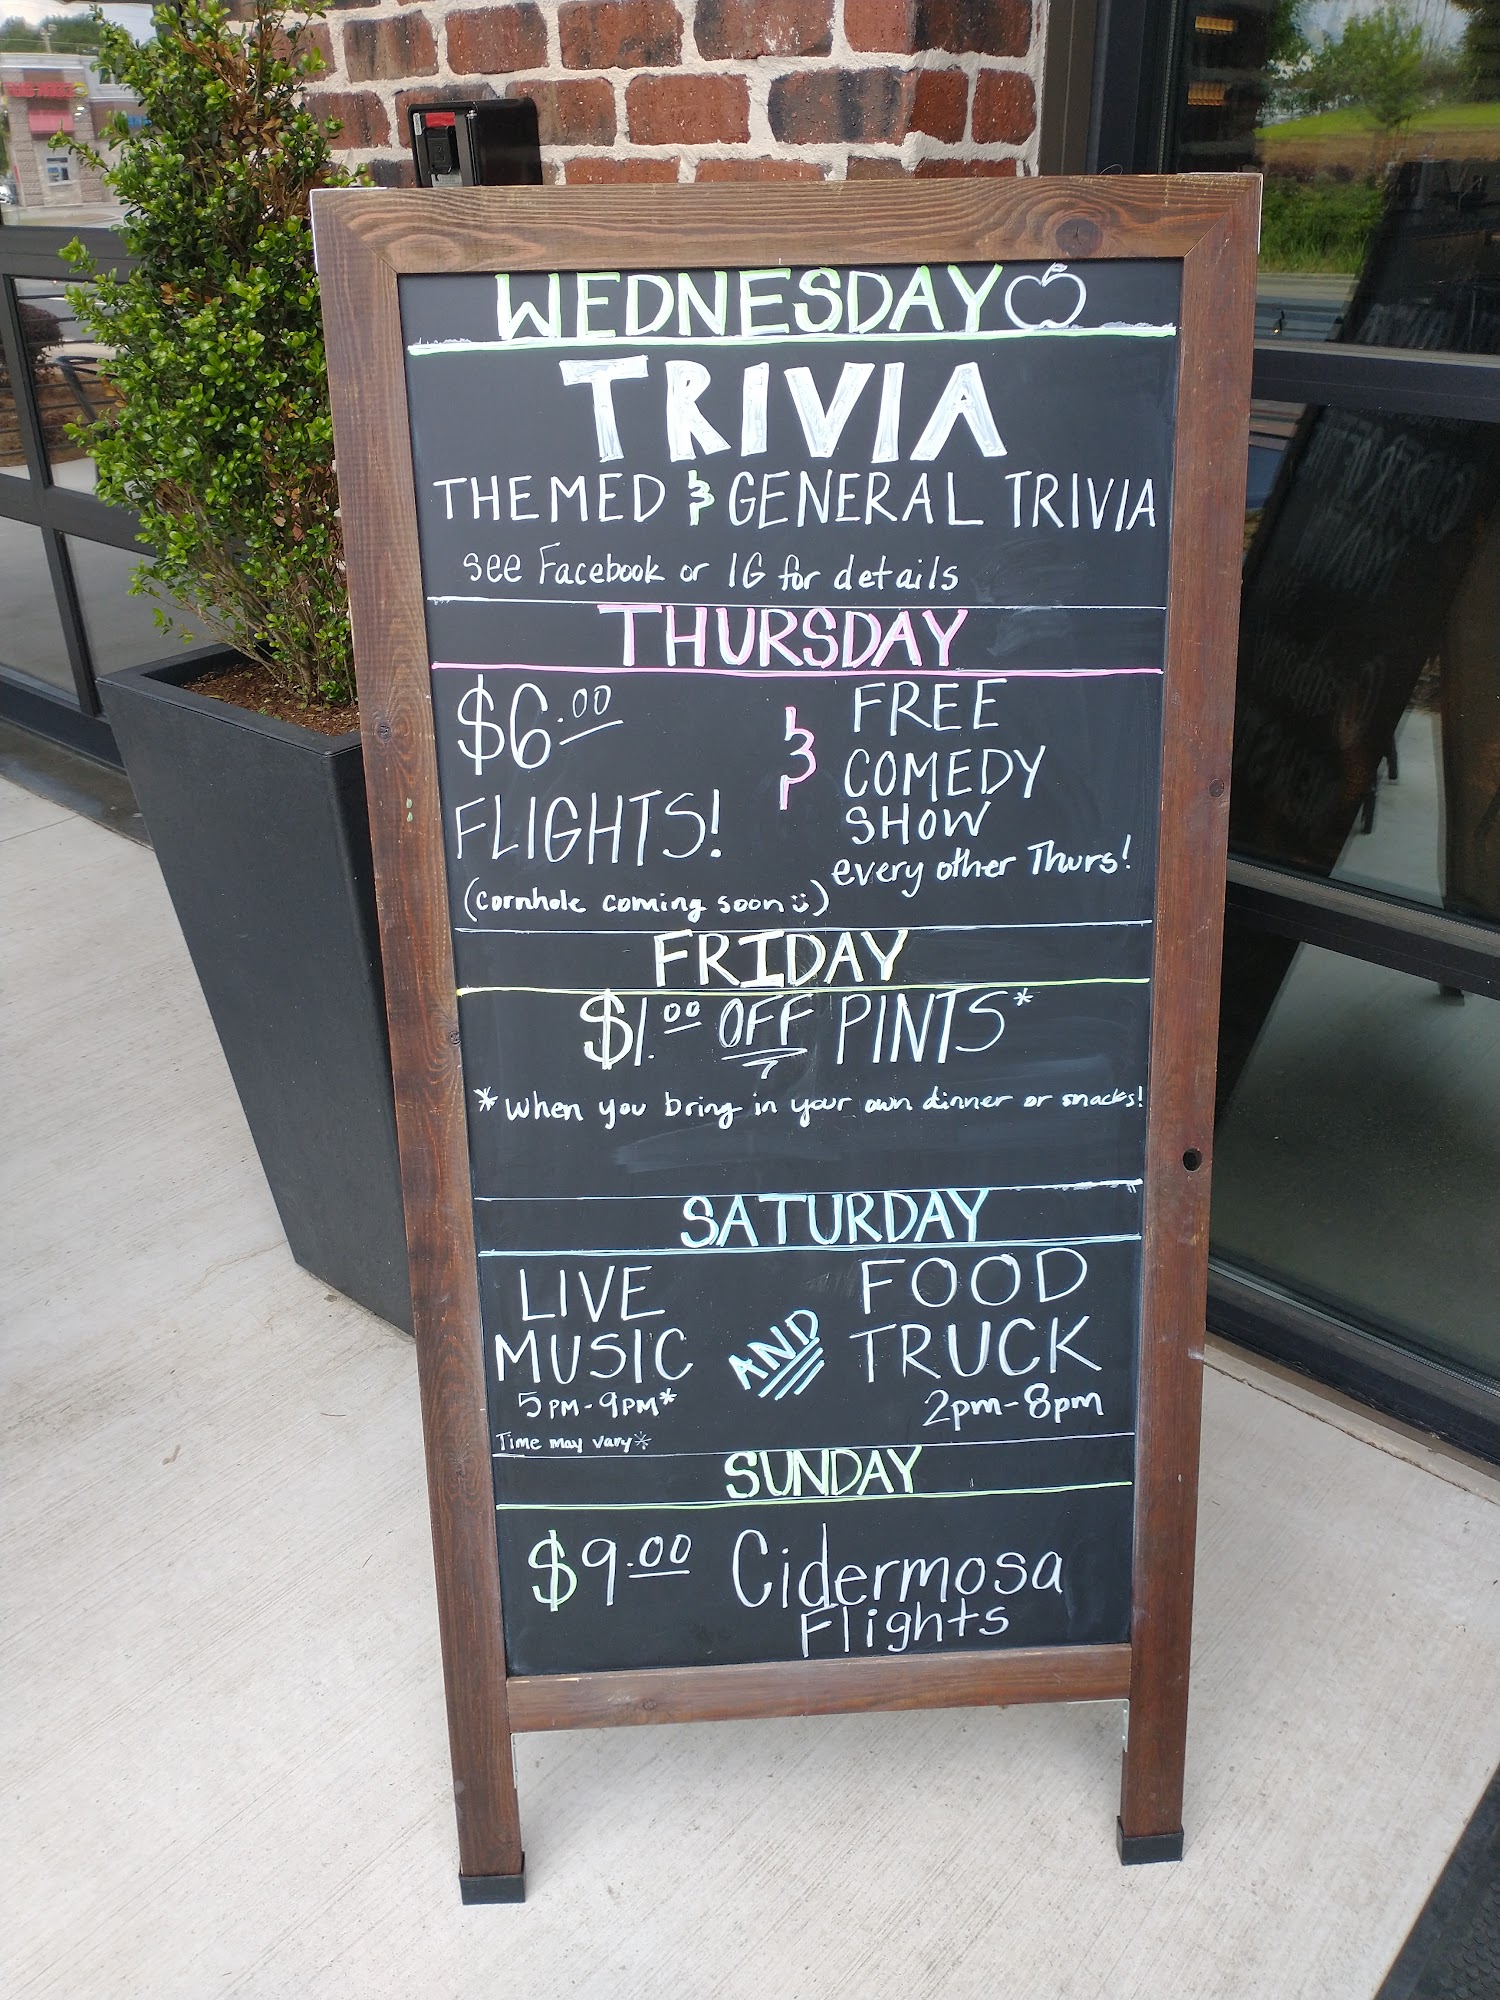 WEDNESDAY
TRIVIA
THEMED & GENERAL TRIVIA
see Facebook or IG for details
THURSDAY
$6.00
FLIGHTS!
(cornhole coming soon)
&
FREE
COMEDY
SHOW
every other Thurs!
FRIDAY
$1.00 OFF PINTS*
*When you bring in your own dinner or snacks!
SATURDAY
LIVE
MUSIC
5PM-9PM*
Time may vary*
AND
FOOD
TRUCK
2pm-8pm
SUNDAY
$9.00 Cidermosa
Flights